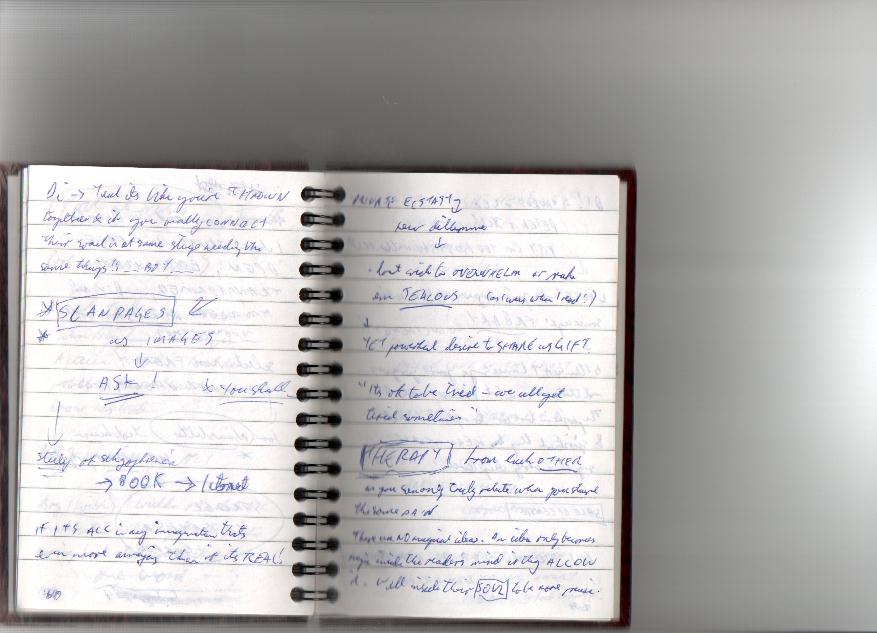 Di → And its like you're THROWN
together & if you really CONNECT
their soul is at same stage needing the
same things!! - BOY
* SCANPAGES
* as IMAGES
ASK! & You shall
study of schizophrenia
→ BOOK → Internet
if ITS ALL in my imagination thats
even more amazing than if its REAL!
PRIVATE ECSTASY
new dilemma
dont wish to OVERWHELM or make
em JEALOUS (as I was when I read!)
YET powerful desire to SHARE as GIFT.
"Its ok to be tired - we all get
tired sometimes"
THERAPY from each OTHER
as you can only truly relate when you share
the same pain
There are NO magical ideas. An idea only becomes
magic inside the readers mind if they ALLOW
it. Well inside their SOUL to be more precise.